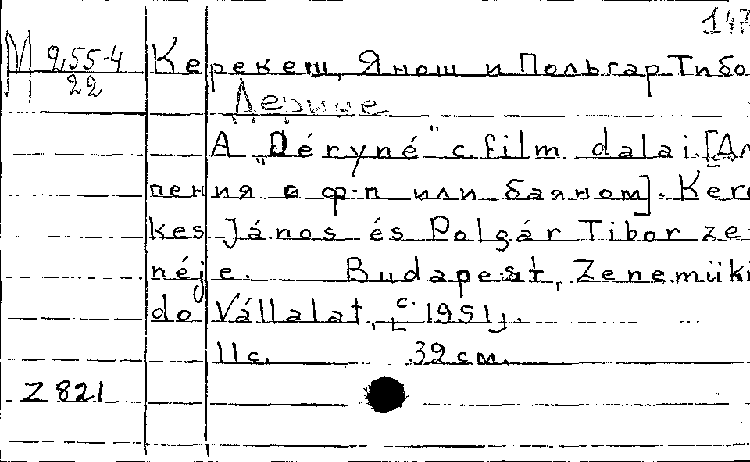 147
М 9,55-4
22
Керекеш, Янош и Польгар Тибо
Дерине
A „Déryné" c. film dalai. [Дл
пения с ф-п или баяном]. Kere
kes János és Polgár Tibor ze
néje. Budapest, Zeneműki
adó Vállalat, [c. 1951].
11 с. 32 см.
Z 821